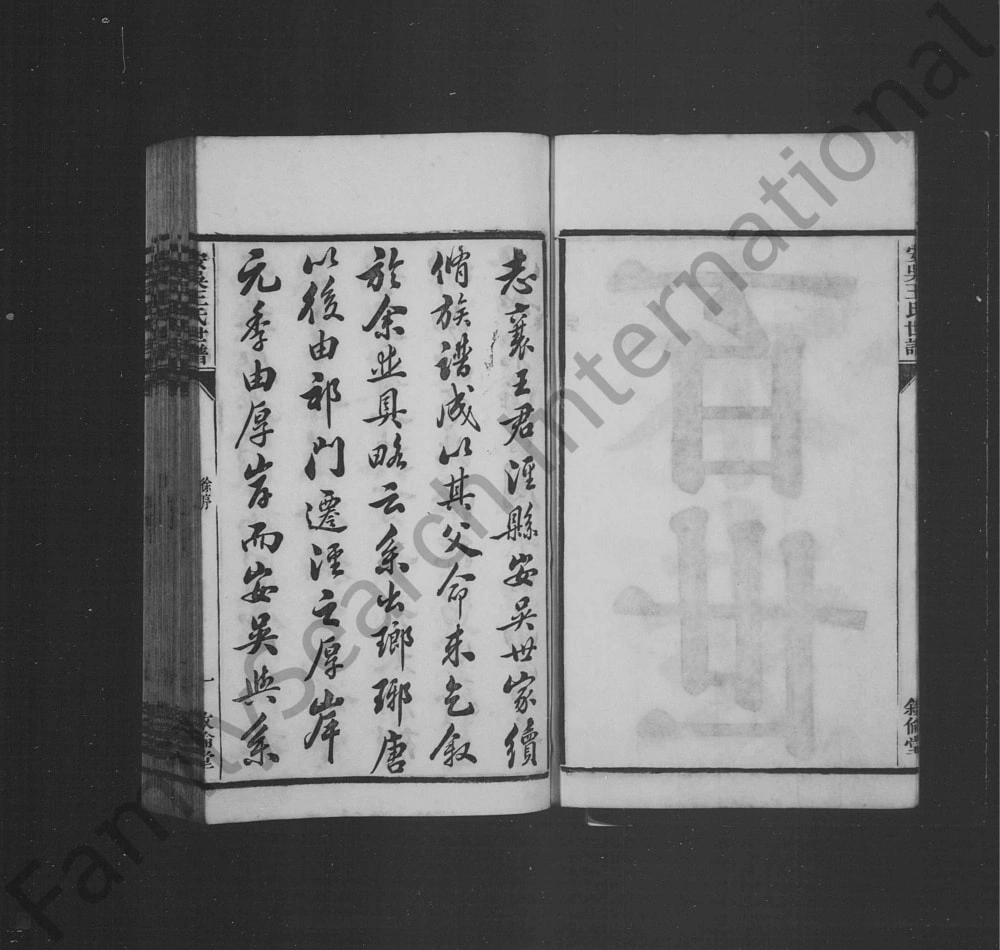 安吳王氏世譜
敘倫堂
百世
志襄王君涇縣安吳世家續
脩族譜成以其父命來乞敘
於余並具略云系出瑯琊唐
以後由祁門遷涇之厚岸
元季由厚岸而安吳與系
安吳王氏世譜
徐序
一
敘倫堂
FamilySearch International